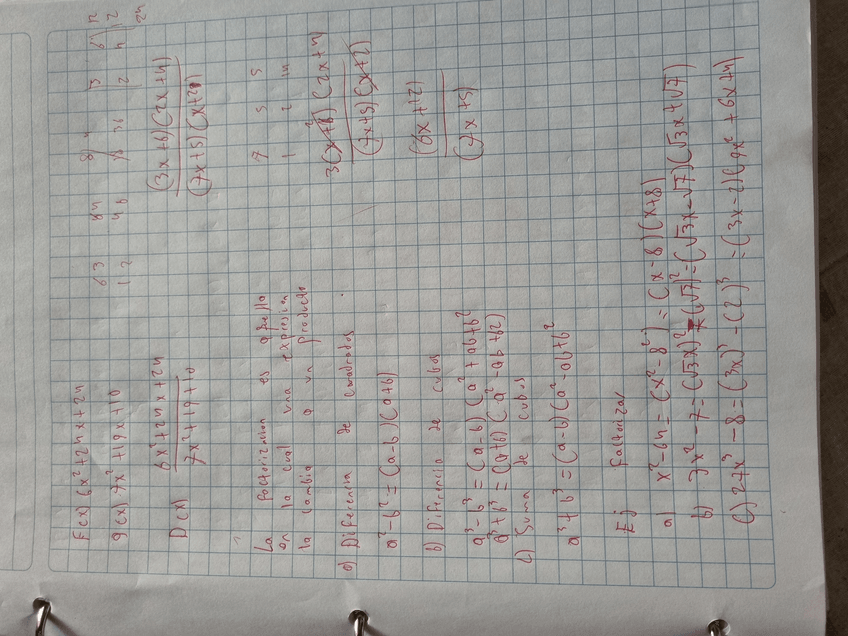 F(x) 6x²+24x+24
g(x) 7x²+19x+10
D(x) 6x²+24x+24
7x²+19+10
6 3 24 8
1 2 4 6
(3x+6)(2x+4)
(7x+5)(x+2)
La factorizacion es aquello
en la cual una expresion
la cambia a un producto
7 5 5
1 2 14
3(x+2)(2x+4)
(7x+5)(x+2)
(6x+12)
(7x+5)
a) Diferencia de cuadrados
a²-b²=(a-b)(a+b)
b) Diferencia de cubos
a³-b³=(a-b)(a²+ab+b²
a³+b³=(a+b)(a²-ab+b2)
c) Suma de cubos
a³+b³=(a-b)(a²-ab+b²
Ej factorizar
a) x²-64=(x²-8²)=(x-8)(x+8)
b) 3x²-7=(√3x)²-(√7)²=(√3x-√7)(√3x+√7)
c) 27x³-8=(3x)³-(2)³=(3x-2)(9x²+6x+4)